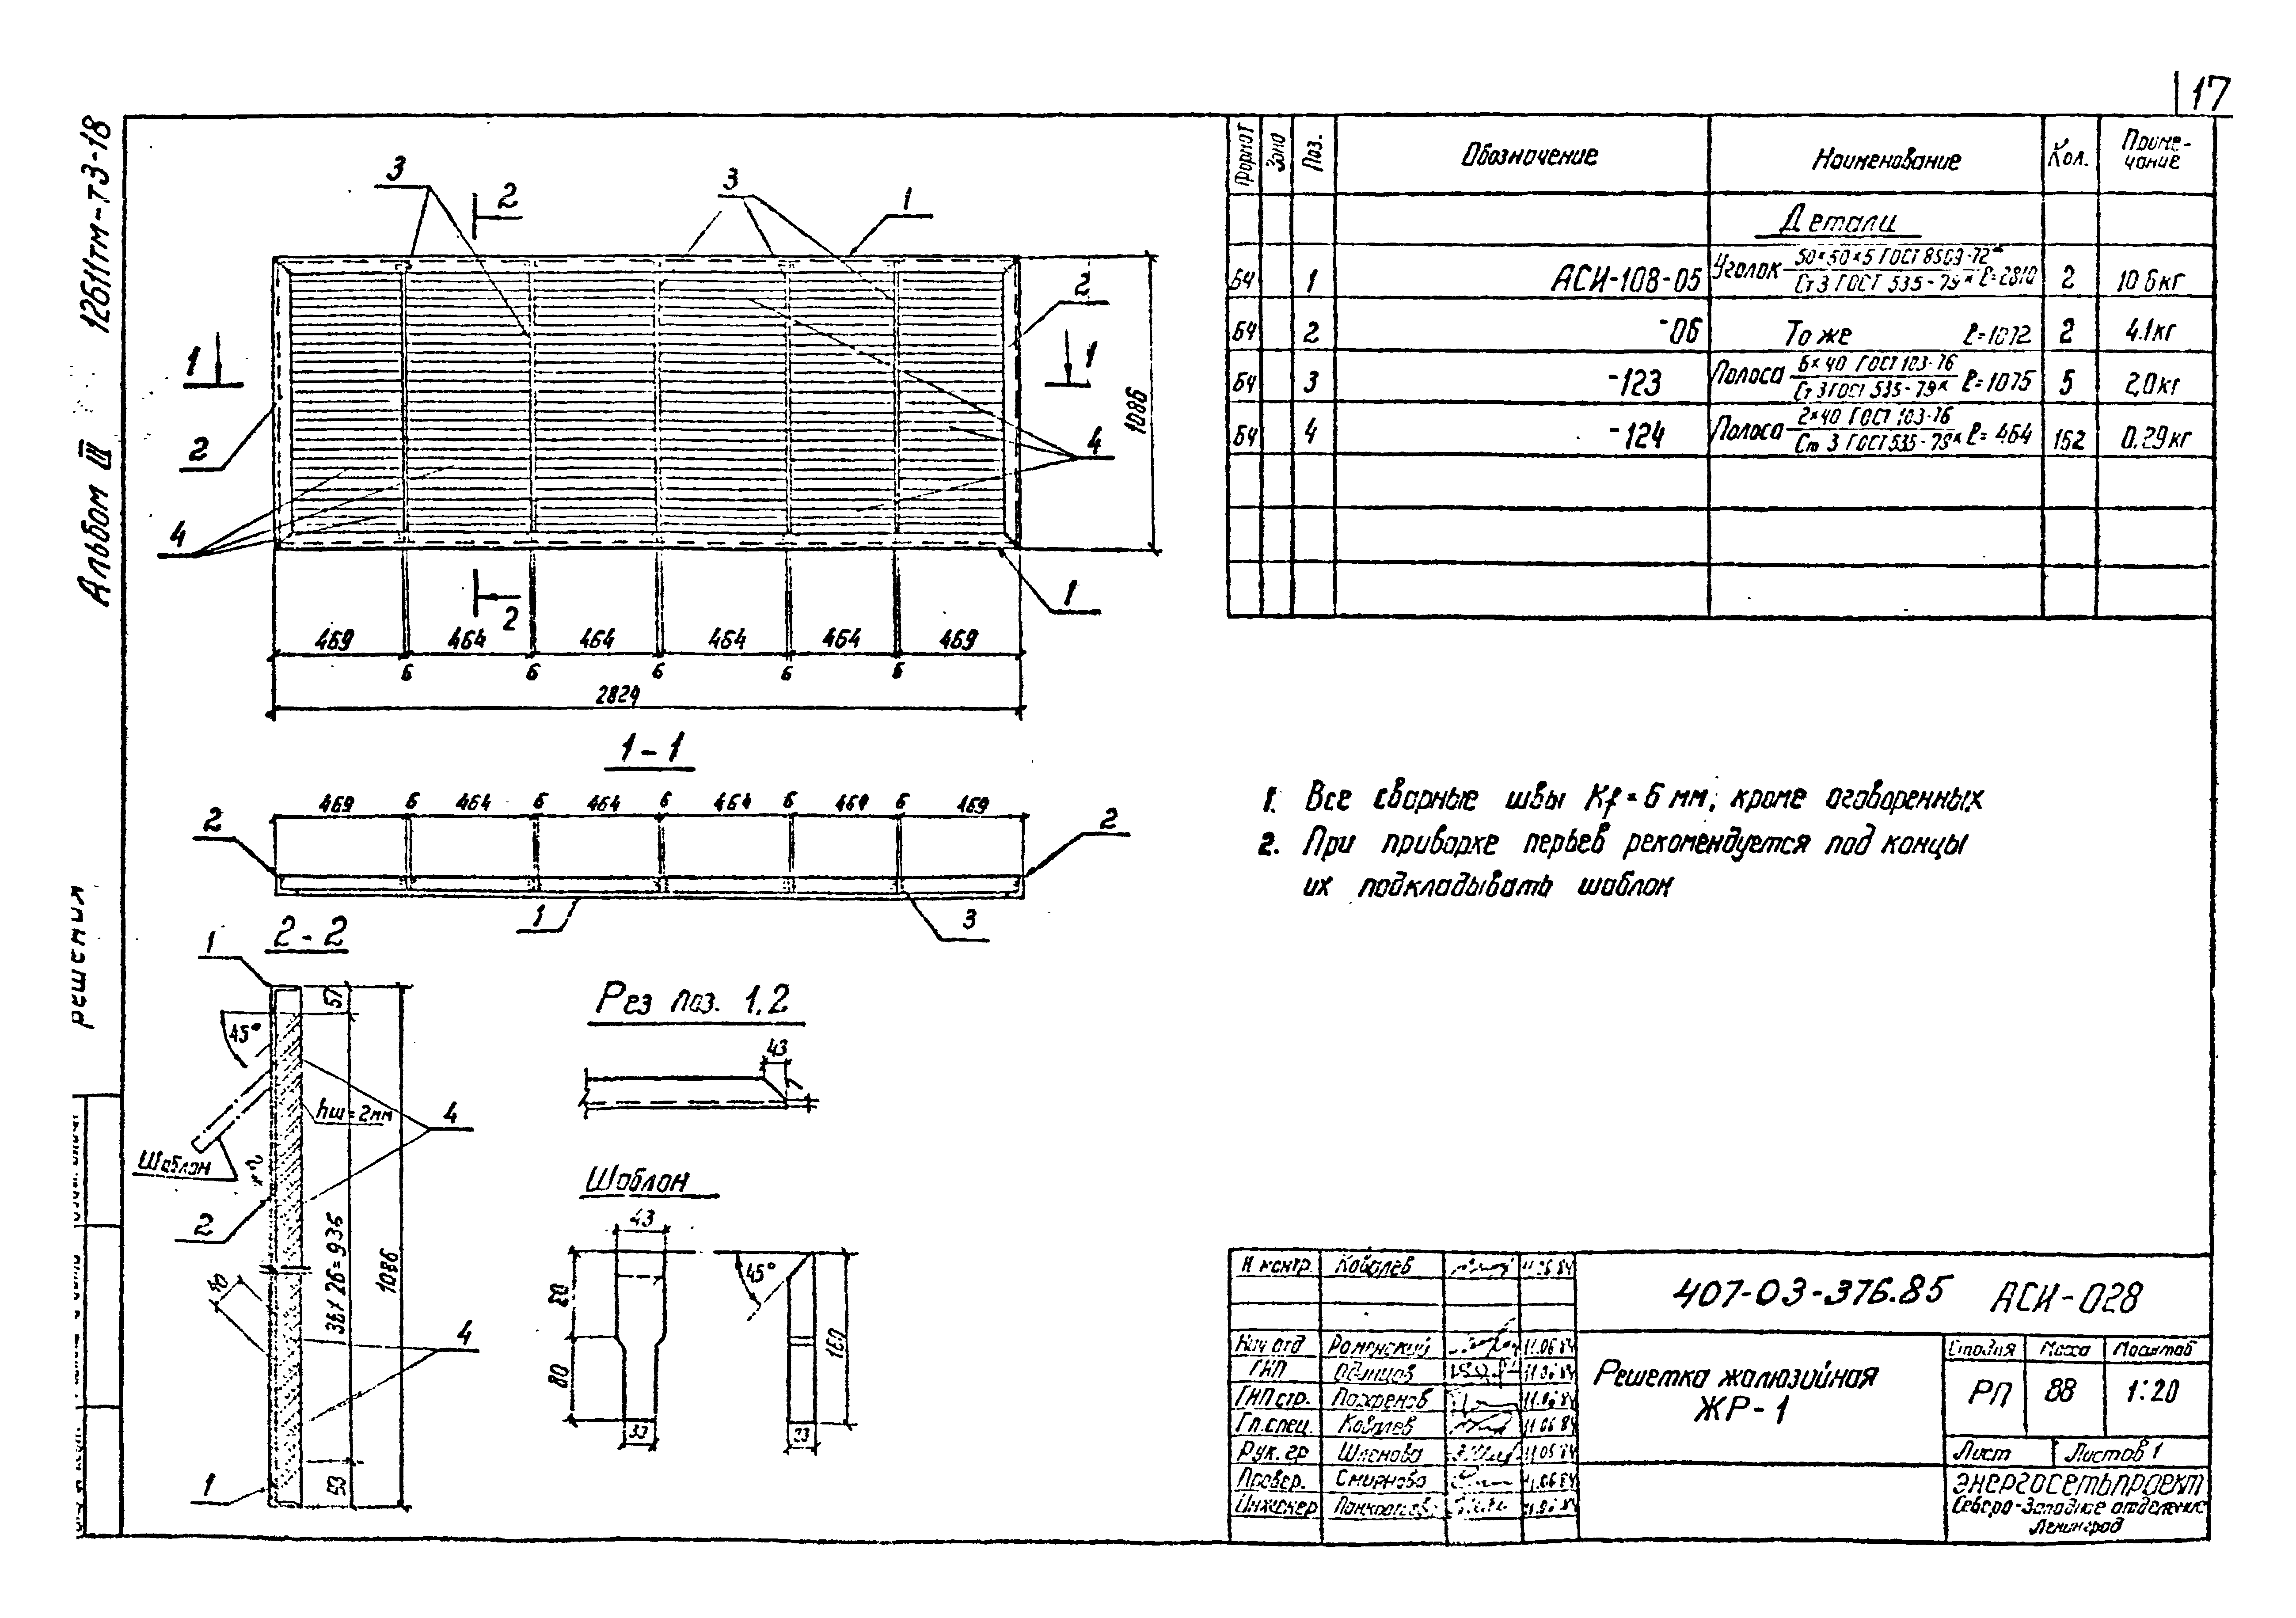 17
12611тм-т3-18
Альбом III
решения
Формат Зона Поз. Обозначение Наименование Кол. Приме-
чание
Детали
БЧ 1 АСИ-108-05 Уголок 50×50×5 ГОСТ 8509-72* / Ст3 ГОСТ 535-79* ℓ=2810 2 10.6кг
БЧ 2 -06 То же ℓ=1072 2 4.1кг
БЧ 3 -123 Полоса 6×40 ГОСТ 103-76 / Ст3 ГОСТ 535-79* ℓ=1075 5 2,0кг
БЧ 4 -124 Полоса 2×40 ГОСТ 103-76 / Ст 3 ГОСТ 535-79* ℓ=464 162 0.29кг
3 2 3 1
2
1 1
1086
2 4
4
2 1
469 464 464 464 464 469
6 6 6 6 6
2824
1-1
469 6 464 6 464 6 464 6 464 6 469
2 2
1 3
1. Все сварные швы Kf=6 мм, кроме оговоренных
2. При приварке перьев рекомендуется под концы
их подкладывать шаблон
2-2
1
57
45°
hш=2мм
4
Шаблон
2
36×26=936
1086
40
4
53
1
Рез поз. 1,2
43
7
Шаблон
43
45°
80
80
160
33
Н контр. Ковалев 11.06.84
407-03-376.85 АСИ-028
Нач отд Роменский 11.06.84
ГИП Одинцов 11.06.84
ГИП стр. Парфенов 11.06.84
Гл.спец. Ковалев 11.06.84
Рук. гр Шленова
Провер. Смирнова 11.06.84
Инженер
Решетка жалюзийная
ЖР-1
Стадия Масса Масштаб
РП 88 1:20
Лист Листов 1
ЭНЕРГОСЕТЬПРОЕКТ
Северо-Западное отделение
Ленинград